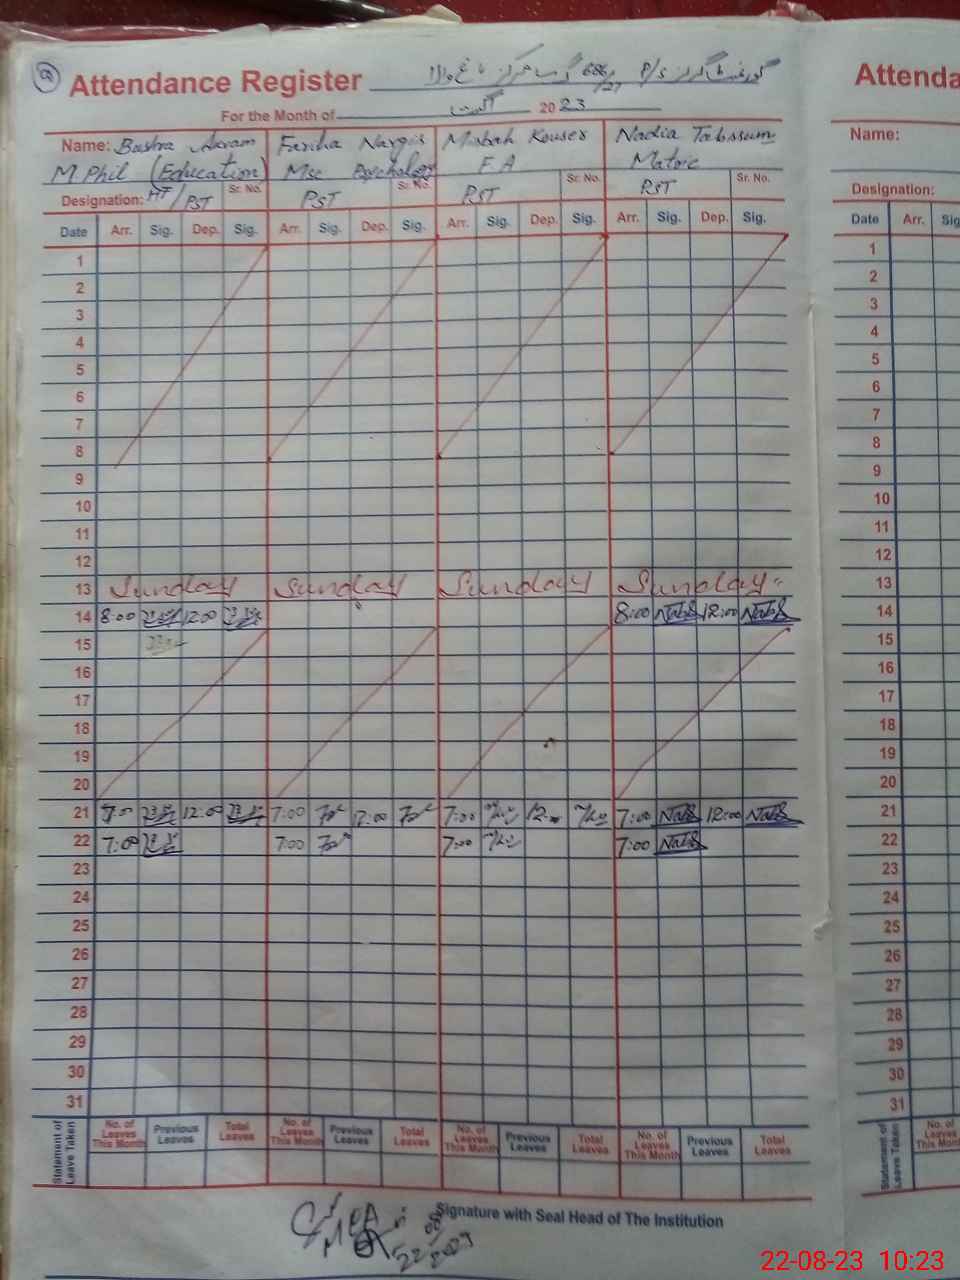 Attendance Register گورنمنٹ گرلز P/S 686/21 گ ب مرکز باغ والا
For the Month of اگست 2023
Attenda
Name: Bushra Akram Fariha Nargis Misbah Kouser Nadia Tabssum
Name:
M Phil (Education) Msc Psychology F.A Matric
Designation: HT/PST Sr. No. PST Sr. No. PST Sr. No. PST Sr. No.
Designation:
Date Arr. Sig. Dep. Sig. Arr. Sig. Dep. Sig. Arr. Sig. Dep. Sig. Arr. Sig. Dep. Sig.
Date Arr. Sig
1 1
2 2
3 3
4 4
5 5
6 6
7 7
8 8
9 9
10 10
11 11
12 12
13 Sunday Sunday Sunday Sunday 13
14 8:00 12:00 8:00 NatS 12:00 NatS 14
15 15
16 16
17 17
18 18
19 19
20 20
21 7:00 12:00 7:00 12:00 7:00 12:00 7:00 NatS 12:00 NatS 21
22 7:00 7:00 7:00 7:00 NatS 22
23 23
24 24
25 25
26 26
27 27
28 28
29 29
30 30
31 31
Statement of Leave Taken No. of Leaves This Month Previous Leaves Total Leaves No. of Leaves This Month Previous Leaves Total Leaves No. of Leaves This Month Previous Leaves Total Leaves No. of Leaves This Month Previous Leaves Total Leaves
Statement of Leave Taken No. of Leaves This Mon
Signature with Seal Head of The Institution
22/08/2023
22-08-23 10:23